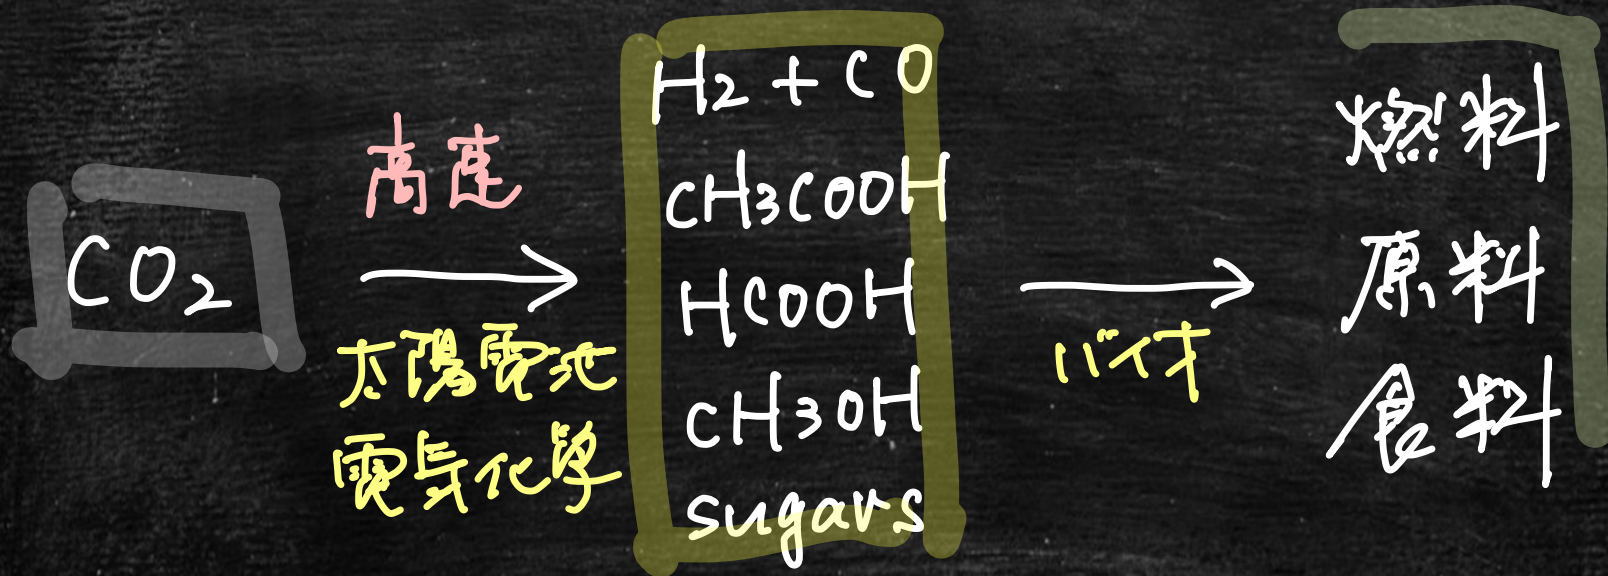 CO₂
高速
太陽電池
電気化学
H2 + CO
CH3COOH
HCOOH
CH3OH
sugars
バイオ
燃料
原料
食料